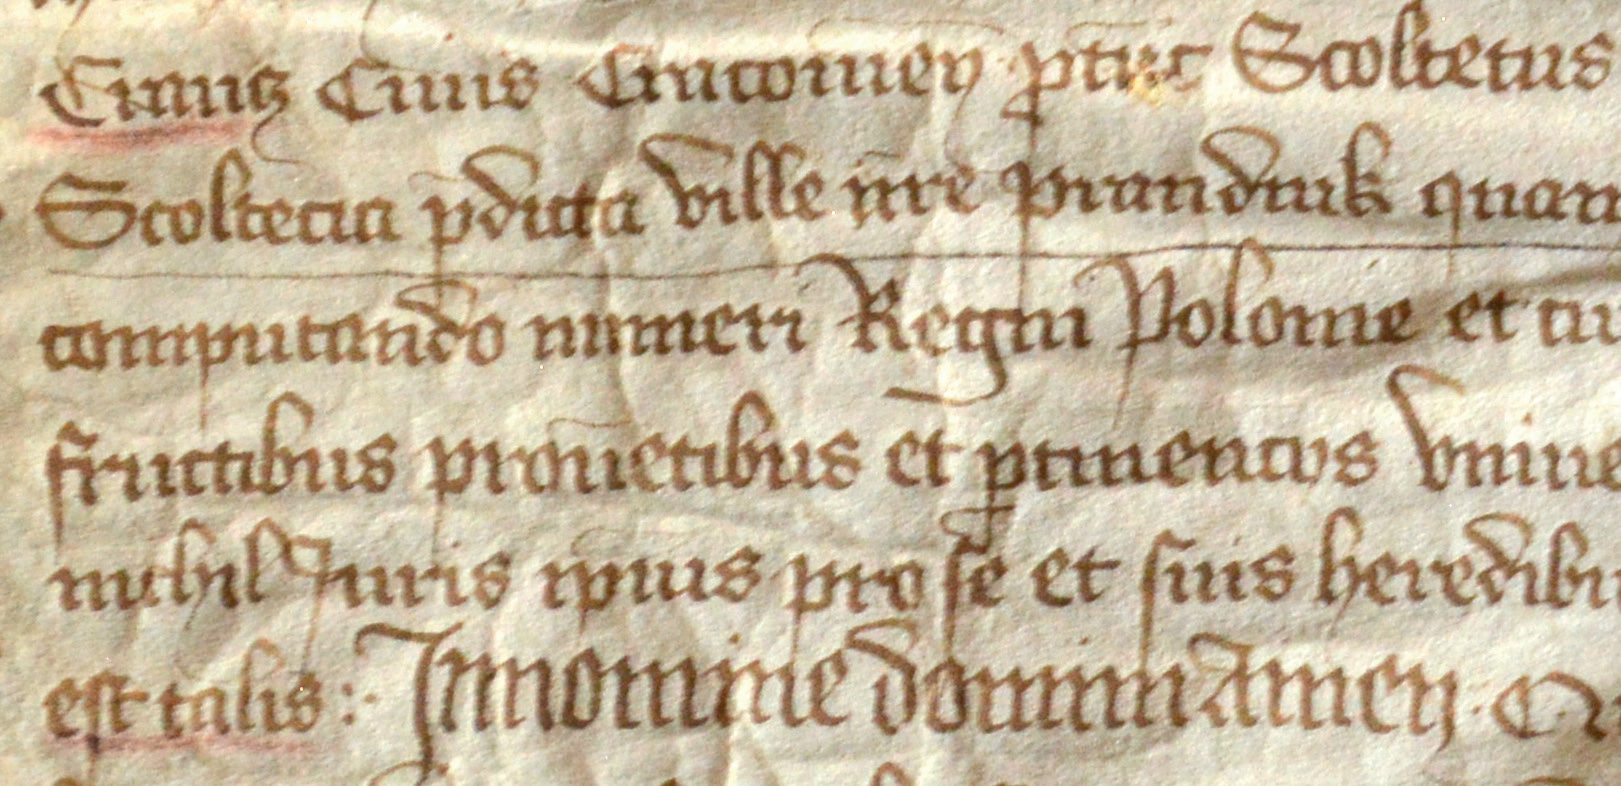 Crancz Ciuis Cracouien ptūc Scoltetus
Scolteciā p̄dictā ville nr̄e prandnik quam
computando numeri Regni Polonie et cu
fructibus prouētibus et ꝑtinencijs vniue
nichil Juris ip̄ius pro se et suis heredibu
est talis : Jn nomine domini Amen